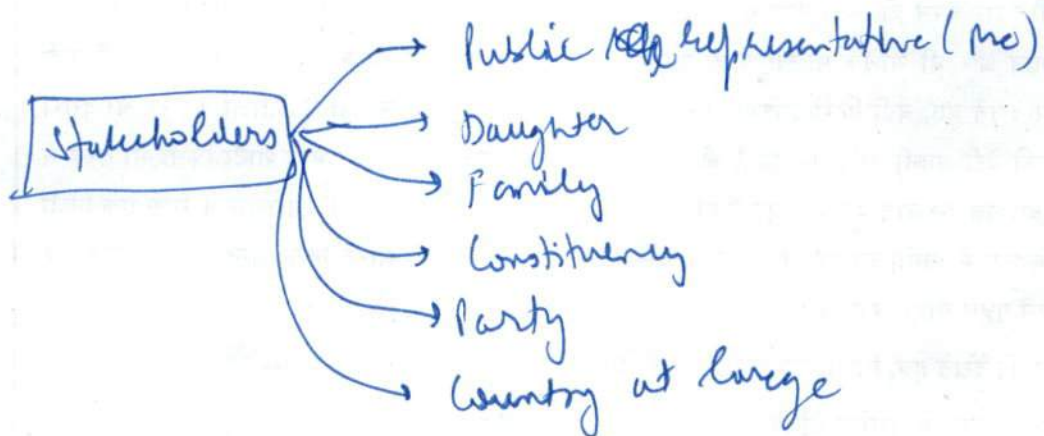 Stakeholders
Public representative (me)
Daughter
Family
Constituency
Party
Country at large